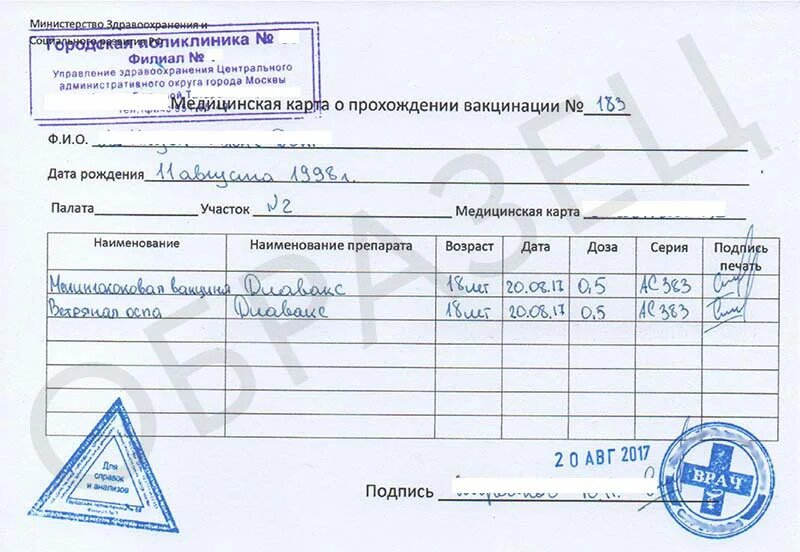 Министерство Здравоохранения и
Социального развития РФ
Городская поликлиника №
Филиал №
Управление здравоохранения Центрального
административного округа города Москвы
Медицинская карта о прохождении вакцинации № 183
Ф.И.О.
Дата рождения 11 августа 1998г.
Палата Участок №2 Медицинская карта
Наименование Наименование препарата Возраст Дата Доза Серия Подпись печать
Менингококовая вакцина Диавакс 18 лет 20.08.17 0,5 АС383
Ветряная оспа Диавакс 18 лет 20.08.17 0,5 АС383
ОБРАЗЕЦ
Для
справок
и анализов
20 АВГ 2017
Подпись
ВРАЧ